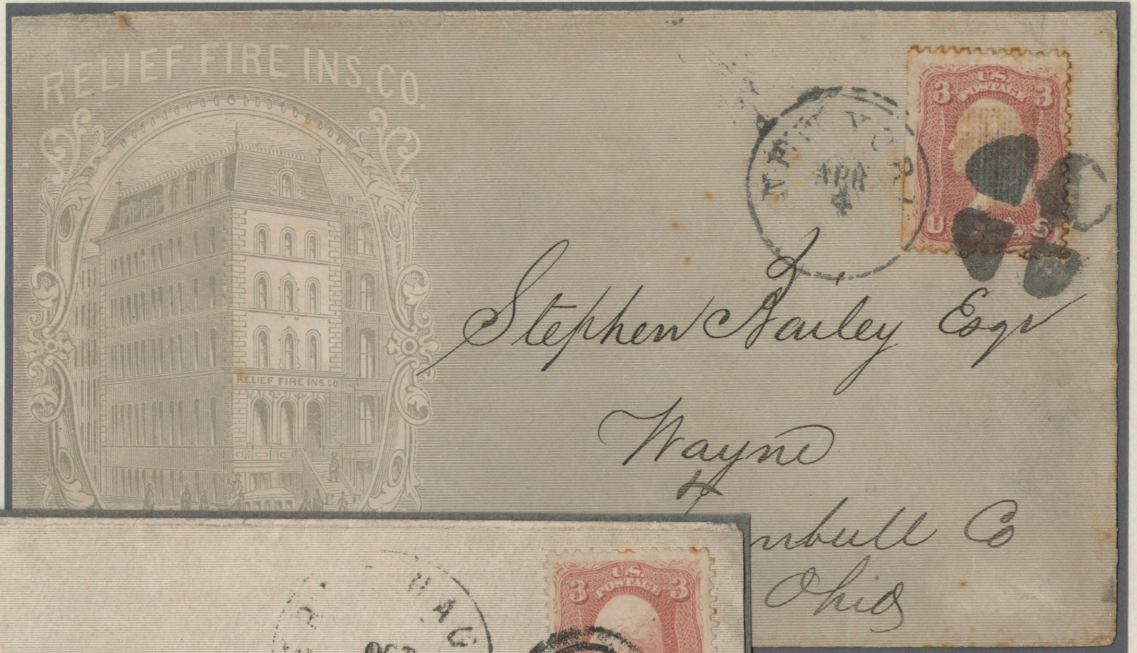 RELIEF FIRE INS. CO.
RELIEF FIRE INS CO
NEW YOR
APR
4
U.S.
POSTAGE
3 3
U S
Stephen Esqr
Wayne
4
mbull Co
Ohio
U.S.
POSTAGE
3 3
HAG
OC